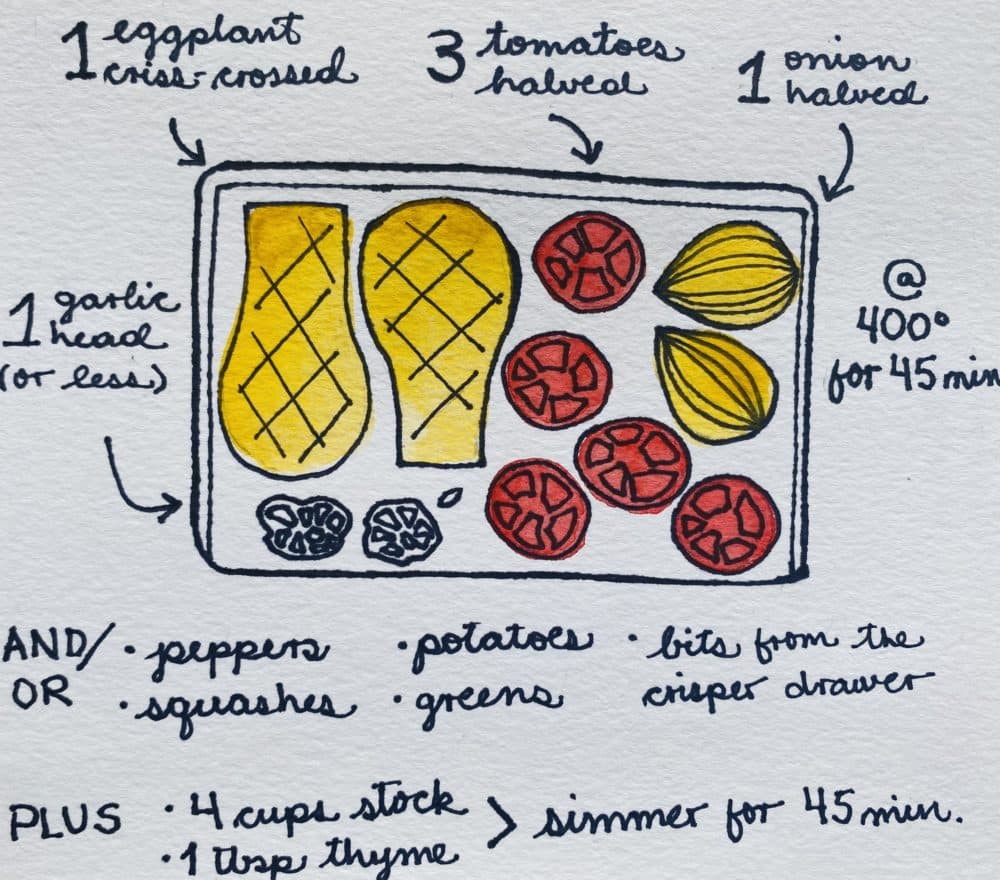 1 eggplant
criss-crossed
3 tomatoes
halved
1 onion
halved
1 garlic
head
(or less)
@
400°
for 45 min
AND/
OR
• peppers
• squashes
• potatoes
• greens
• bits from the
crisper drawer
PLUS
• 4 cups stock
• 1 tbsp thyme
> simmer for 45 min.